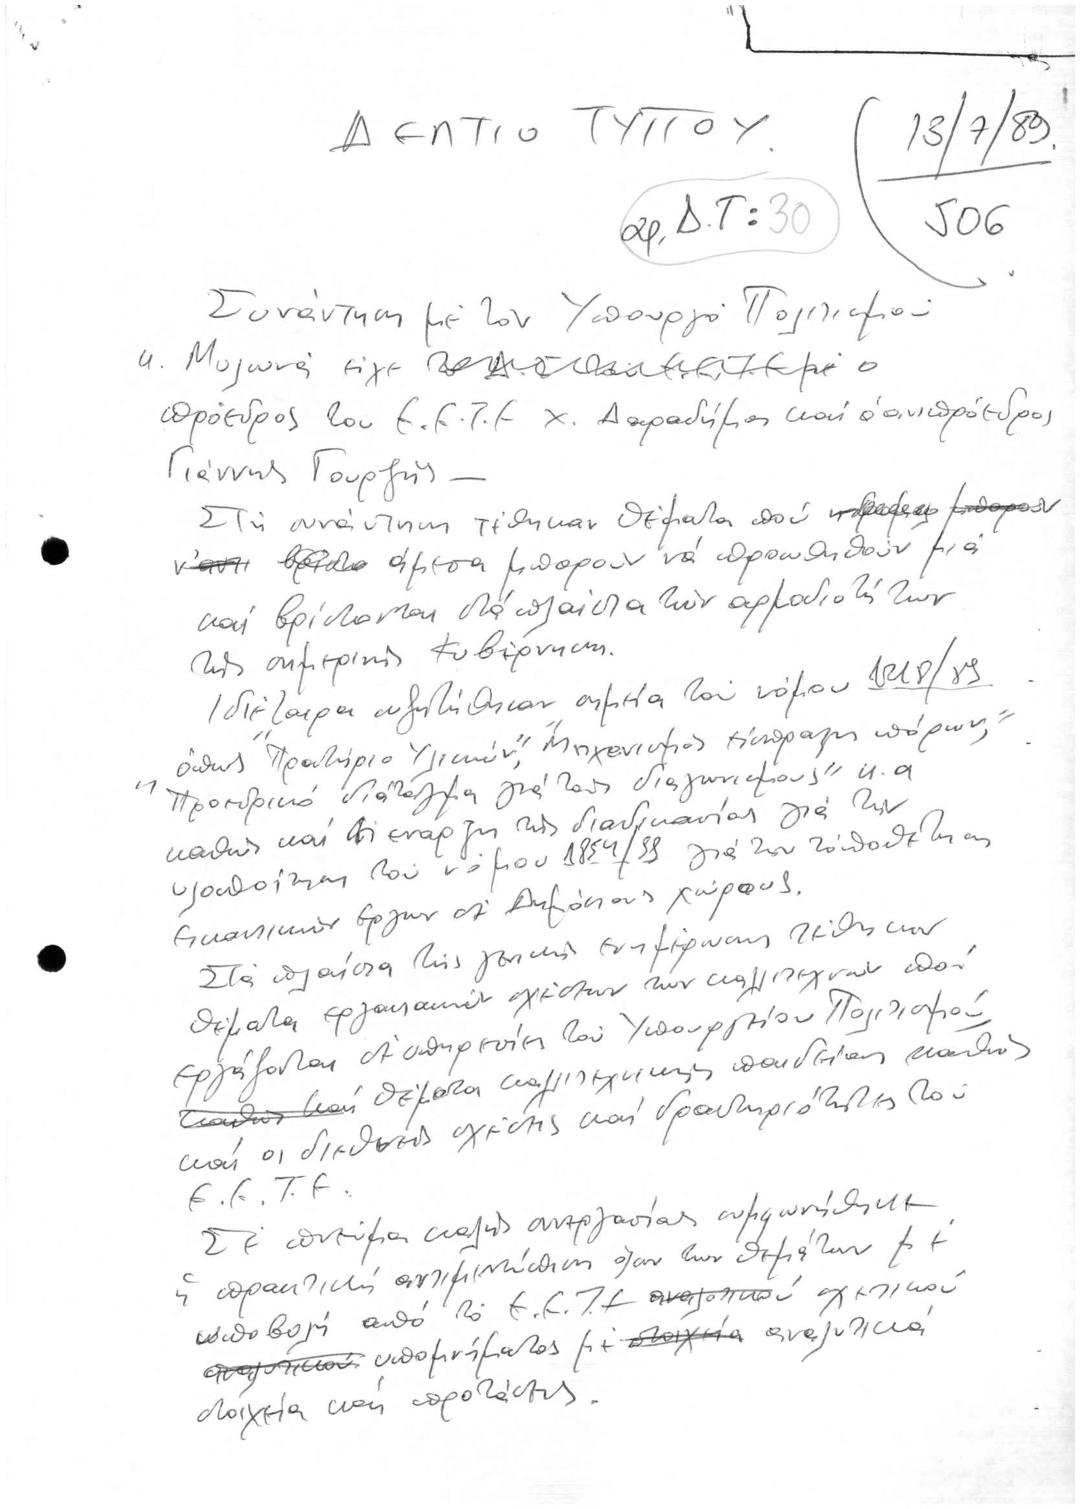 ΔΕΛΤΙΟ ΤΥΠΟΥ.
13/7/89.
506
αρ. Δ.Τ: 30
Συνάντηση μέ τον Υπουργό Πολιτισμού
κ. Μυλωνά είχε ο
πρόεδρος του Ε.Ε.Τ.Ε Χ. Δαραδήμος καί ο αντιπρόεδρος
Γιάννης Γουρζής —
Στή συνάντηση τέθηκαν θέματα πού
άμεσα μπορούν νά προωθηθούν μιά
καί βρίσκονται στά πλαίσια τών αρμοδιοτήτων
τής σημερινής Κυβέρνησης.
Ιδιέταιρα συζητήθηκαν σημεία τού νόμου 1218/89
όπως "Πρατήριο Υλικών", "Μηχανισμός είσπραξης πόρων,"
"Προεδρικό διάταγμα γιά τους διαγωνισμούς" κ.α
καθώς καί η έναρξη τής διαδικασίας γιά τήν
υλοποίηση τού νόμου 1854/ γιά την τοποθέτηση
εικαστικών έργων σέ Δημόσιους χώρους.
Στά πλαίσια τής γενικής ενημέρωσης τέθηκαν
θέματα εργασιακών σχέσεων των καλλιτεχνών πού
εργάζονται σέ υπηρεσίες τού Υπουργείου Πολιτισμού
καθώς καί θέματα καλλιτεχνικής παιδείας καθώς
καί οι διεθνείς σχέσεις καί δραστηριότητες τού
Ε.Ε.Τ.Ε.
Σέ πνεύμα καλής συνεργασίας συμφωνήθηκε
ή πρακτική αντιμετώπιση όλων των θεμάτων μέ
υποβολή από τό Ε.Ε.Τ.Ε αναλυτικού σχετικού
αναλυτικού υπομνήματος μέ στοιχεία αναλυτικά
στοιχεία καί προτάσεις.